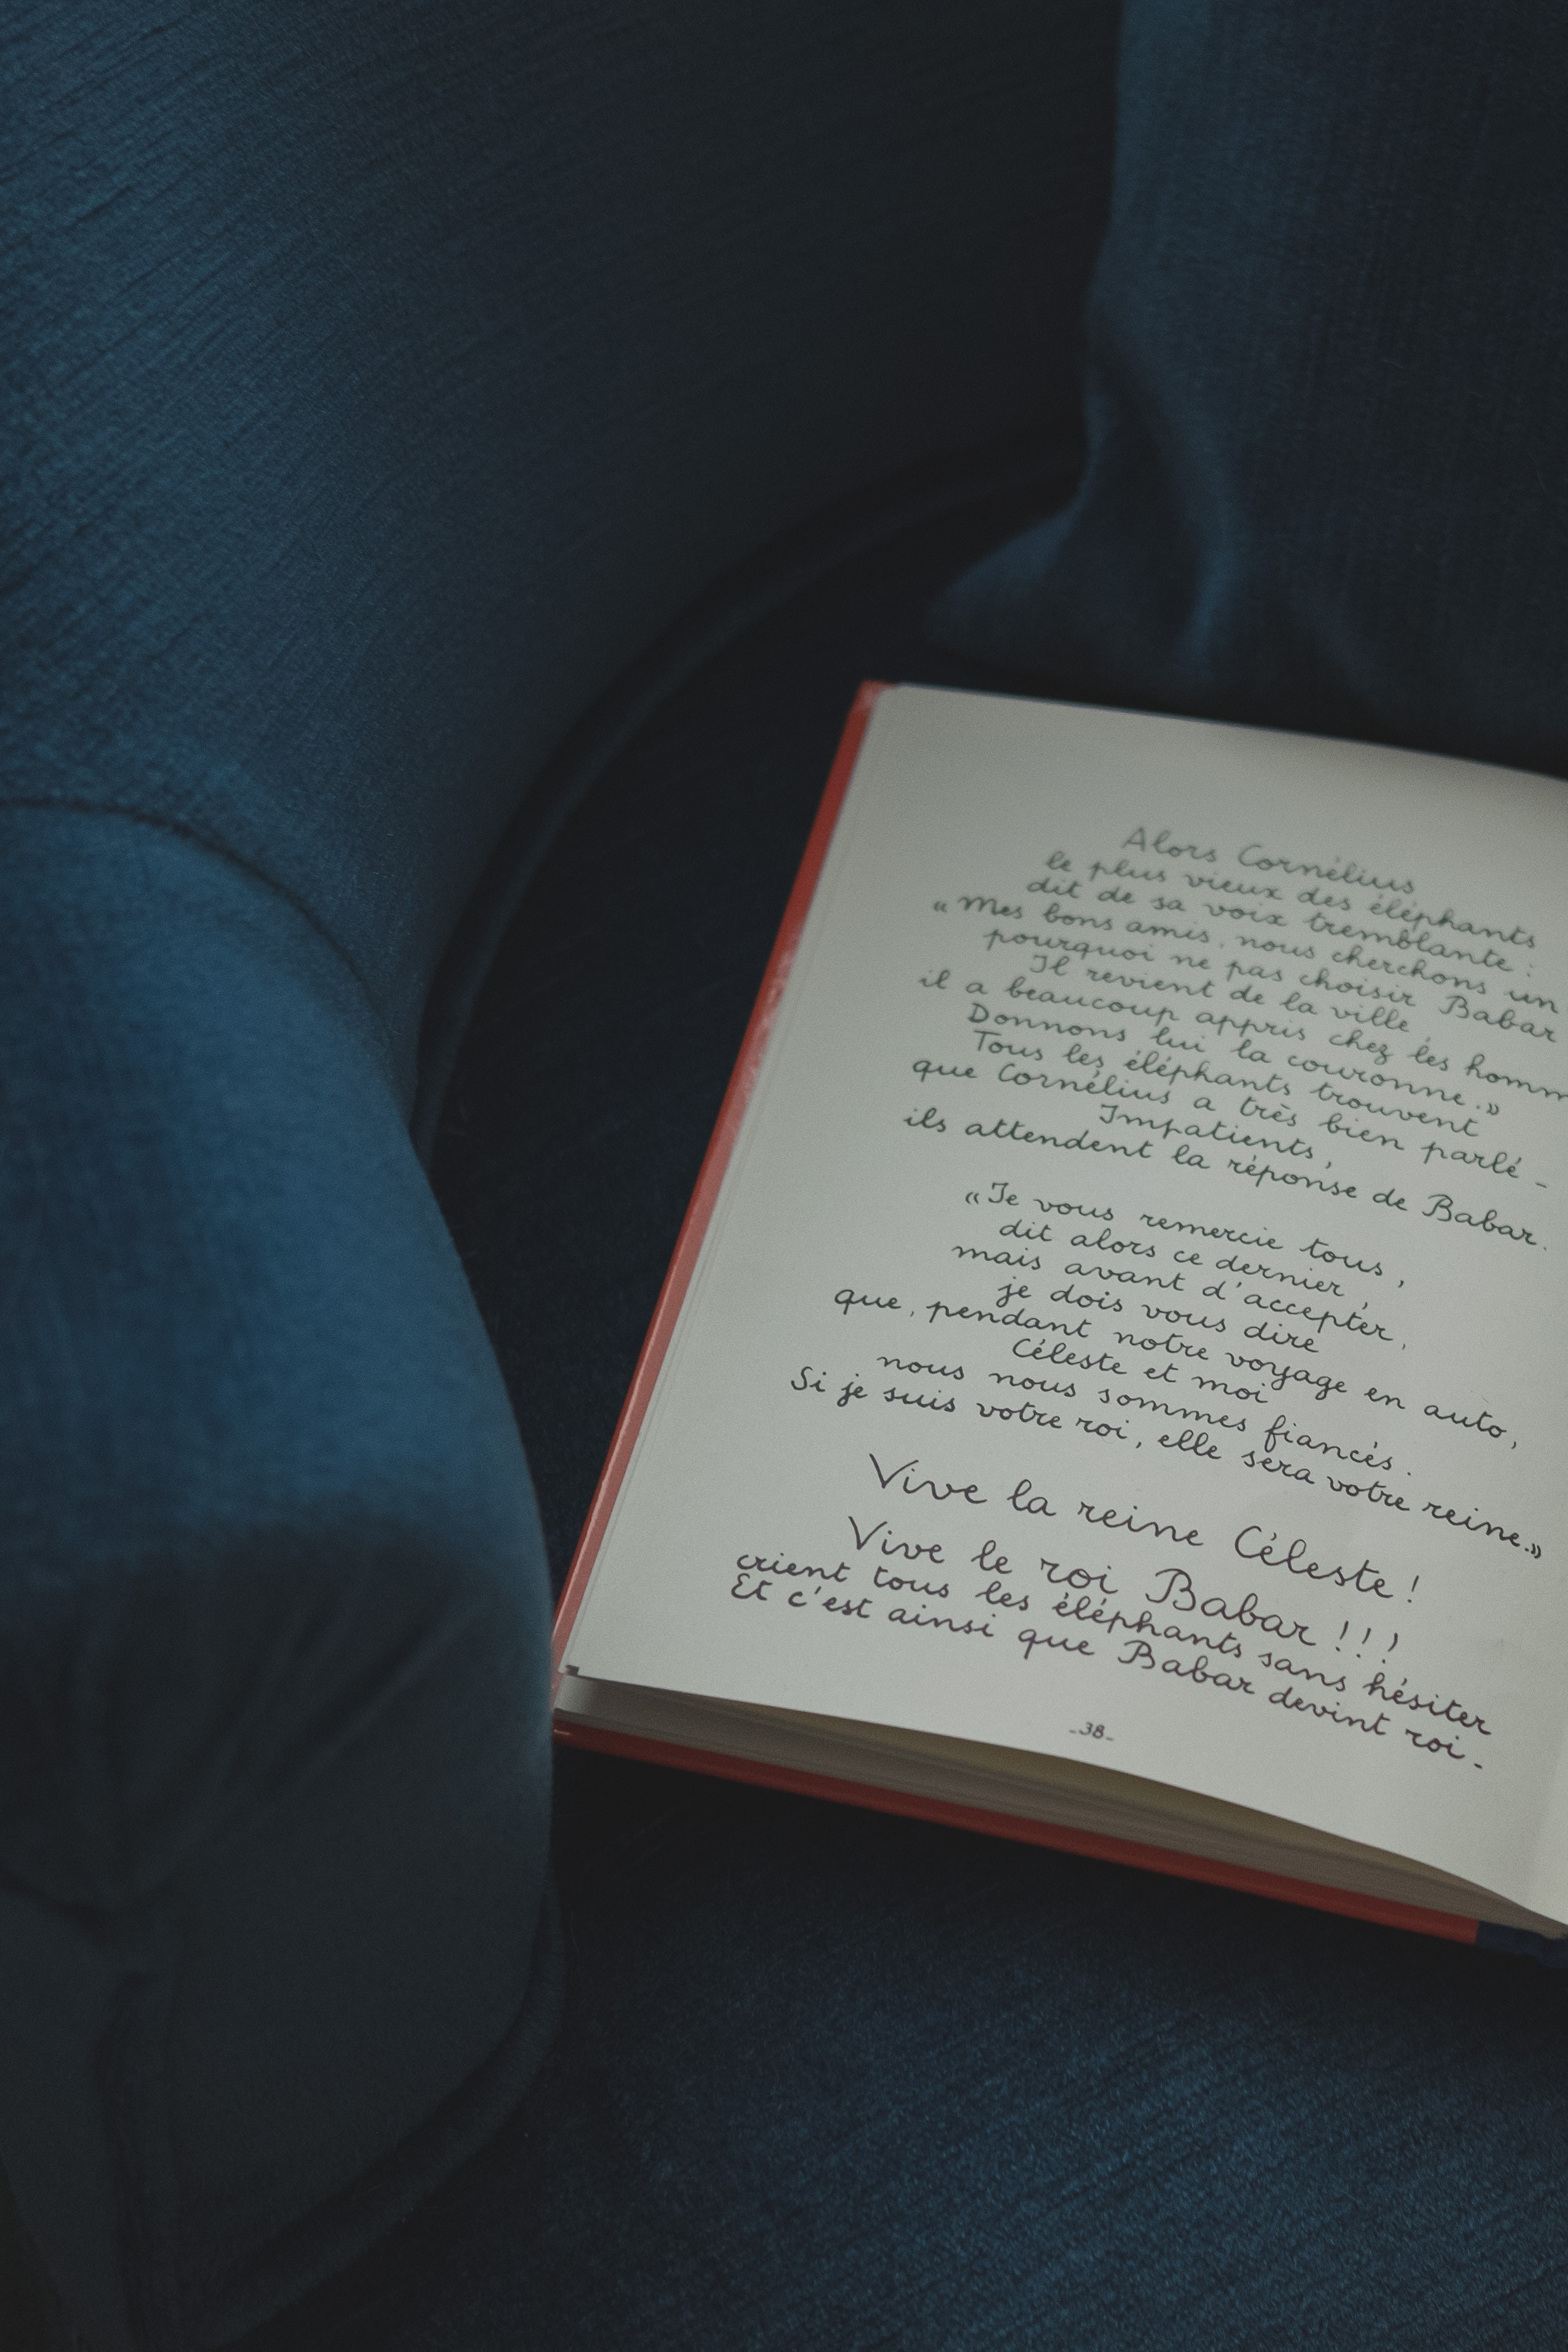 Alors Cornélius
le plus vieux des éléphants
dit de sa voix tremblante :
«Mes bons amis, nous cherchons un
pourquoi ne pas choisir Babar
Il revient de la ville,
il a beaucoup appris chez les homm
Donnons lui la couronne.»
Tous les éléphants trouvent
que Cornélius a très bien parlé -
Impatients,
ils attendent la réponse de Babar.
«Je vous remercie tous,
dit alors ce dernier,
mais avant d'accepter,
je dois vous dire
que, pendant notre voyage en auto,
Céleste et moi
nous nous sommes fiancés.
Si je suis votre roi, elle sera votre reine.»
Vive la reine Céleste!
Vive le roi Babar!!!
crient tous les éléphants sans hésiter
Et c'est ainsi que Babar devint roi -
-38-